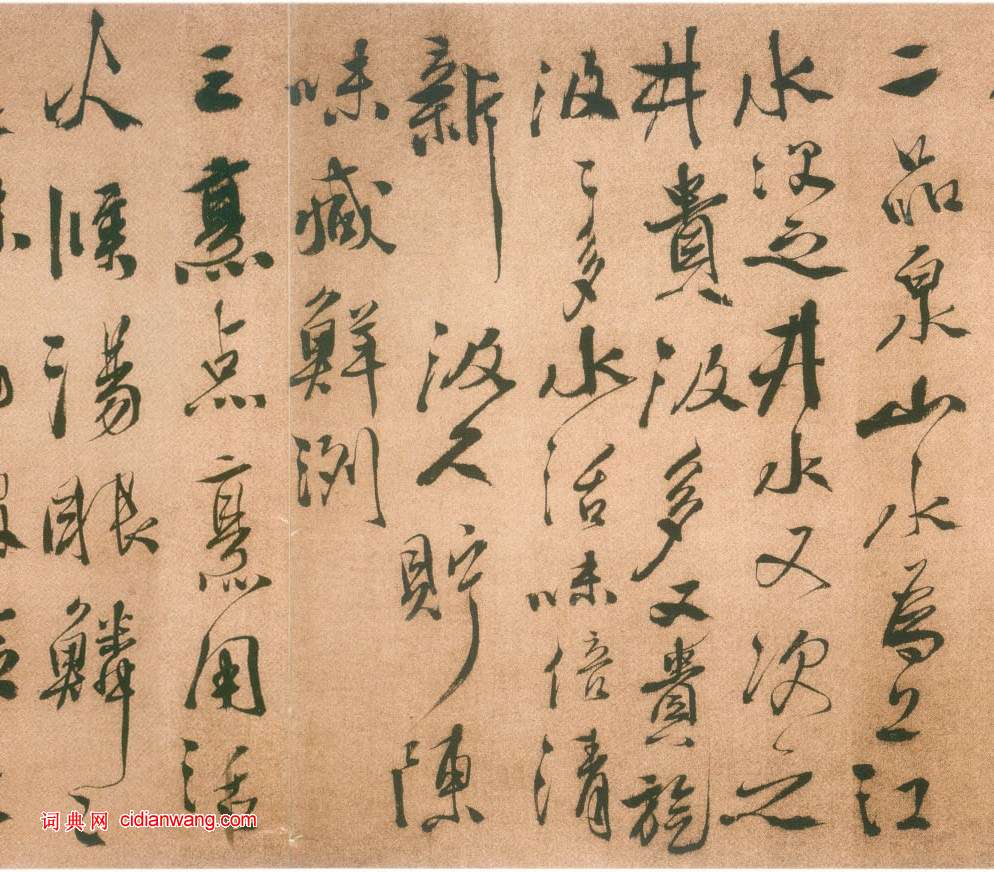 二品泉山水為上江
水次之井水又次之
井貴汲多又貴旋
汲汲多水活味倍清
新汲久貯陳
味減鮮洌
三烹点烹用活
火候湯眼鱗々
词典网 cidianwang.com